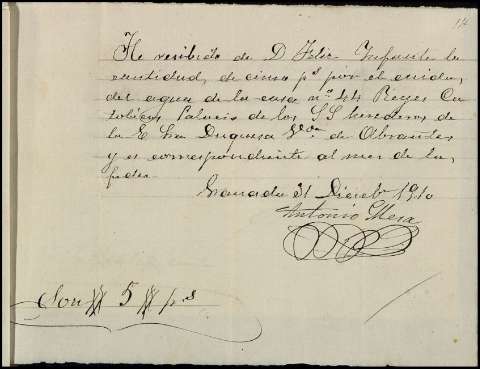 14
He recibido de D Felix Infante la
cantidad, de cinco pts por el cuida,
do, del agua de la casa nº 44 Reyes Ca
tolicos Palacio de los SS herederos de
la E Sra Duquesa Vda de Abrantes
y es correspondiente al mes de la,
fecha
Granada 31 Diciebr 1910
Antonio Mesa
Son 5 pts